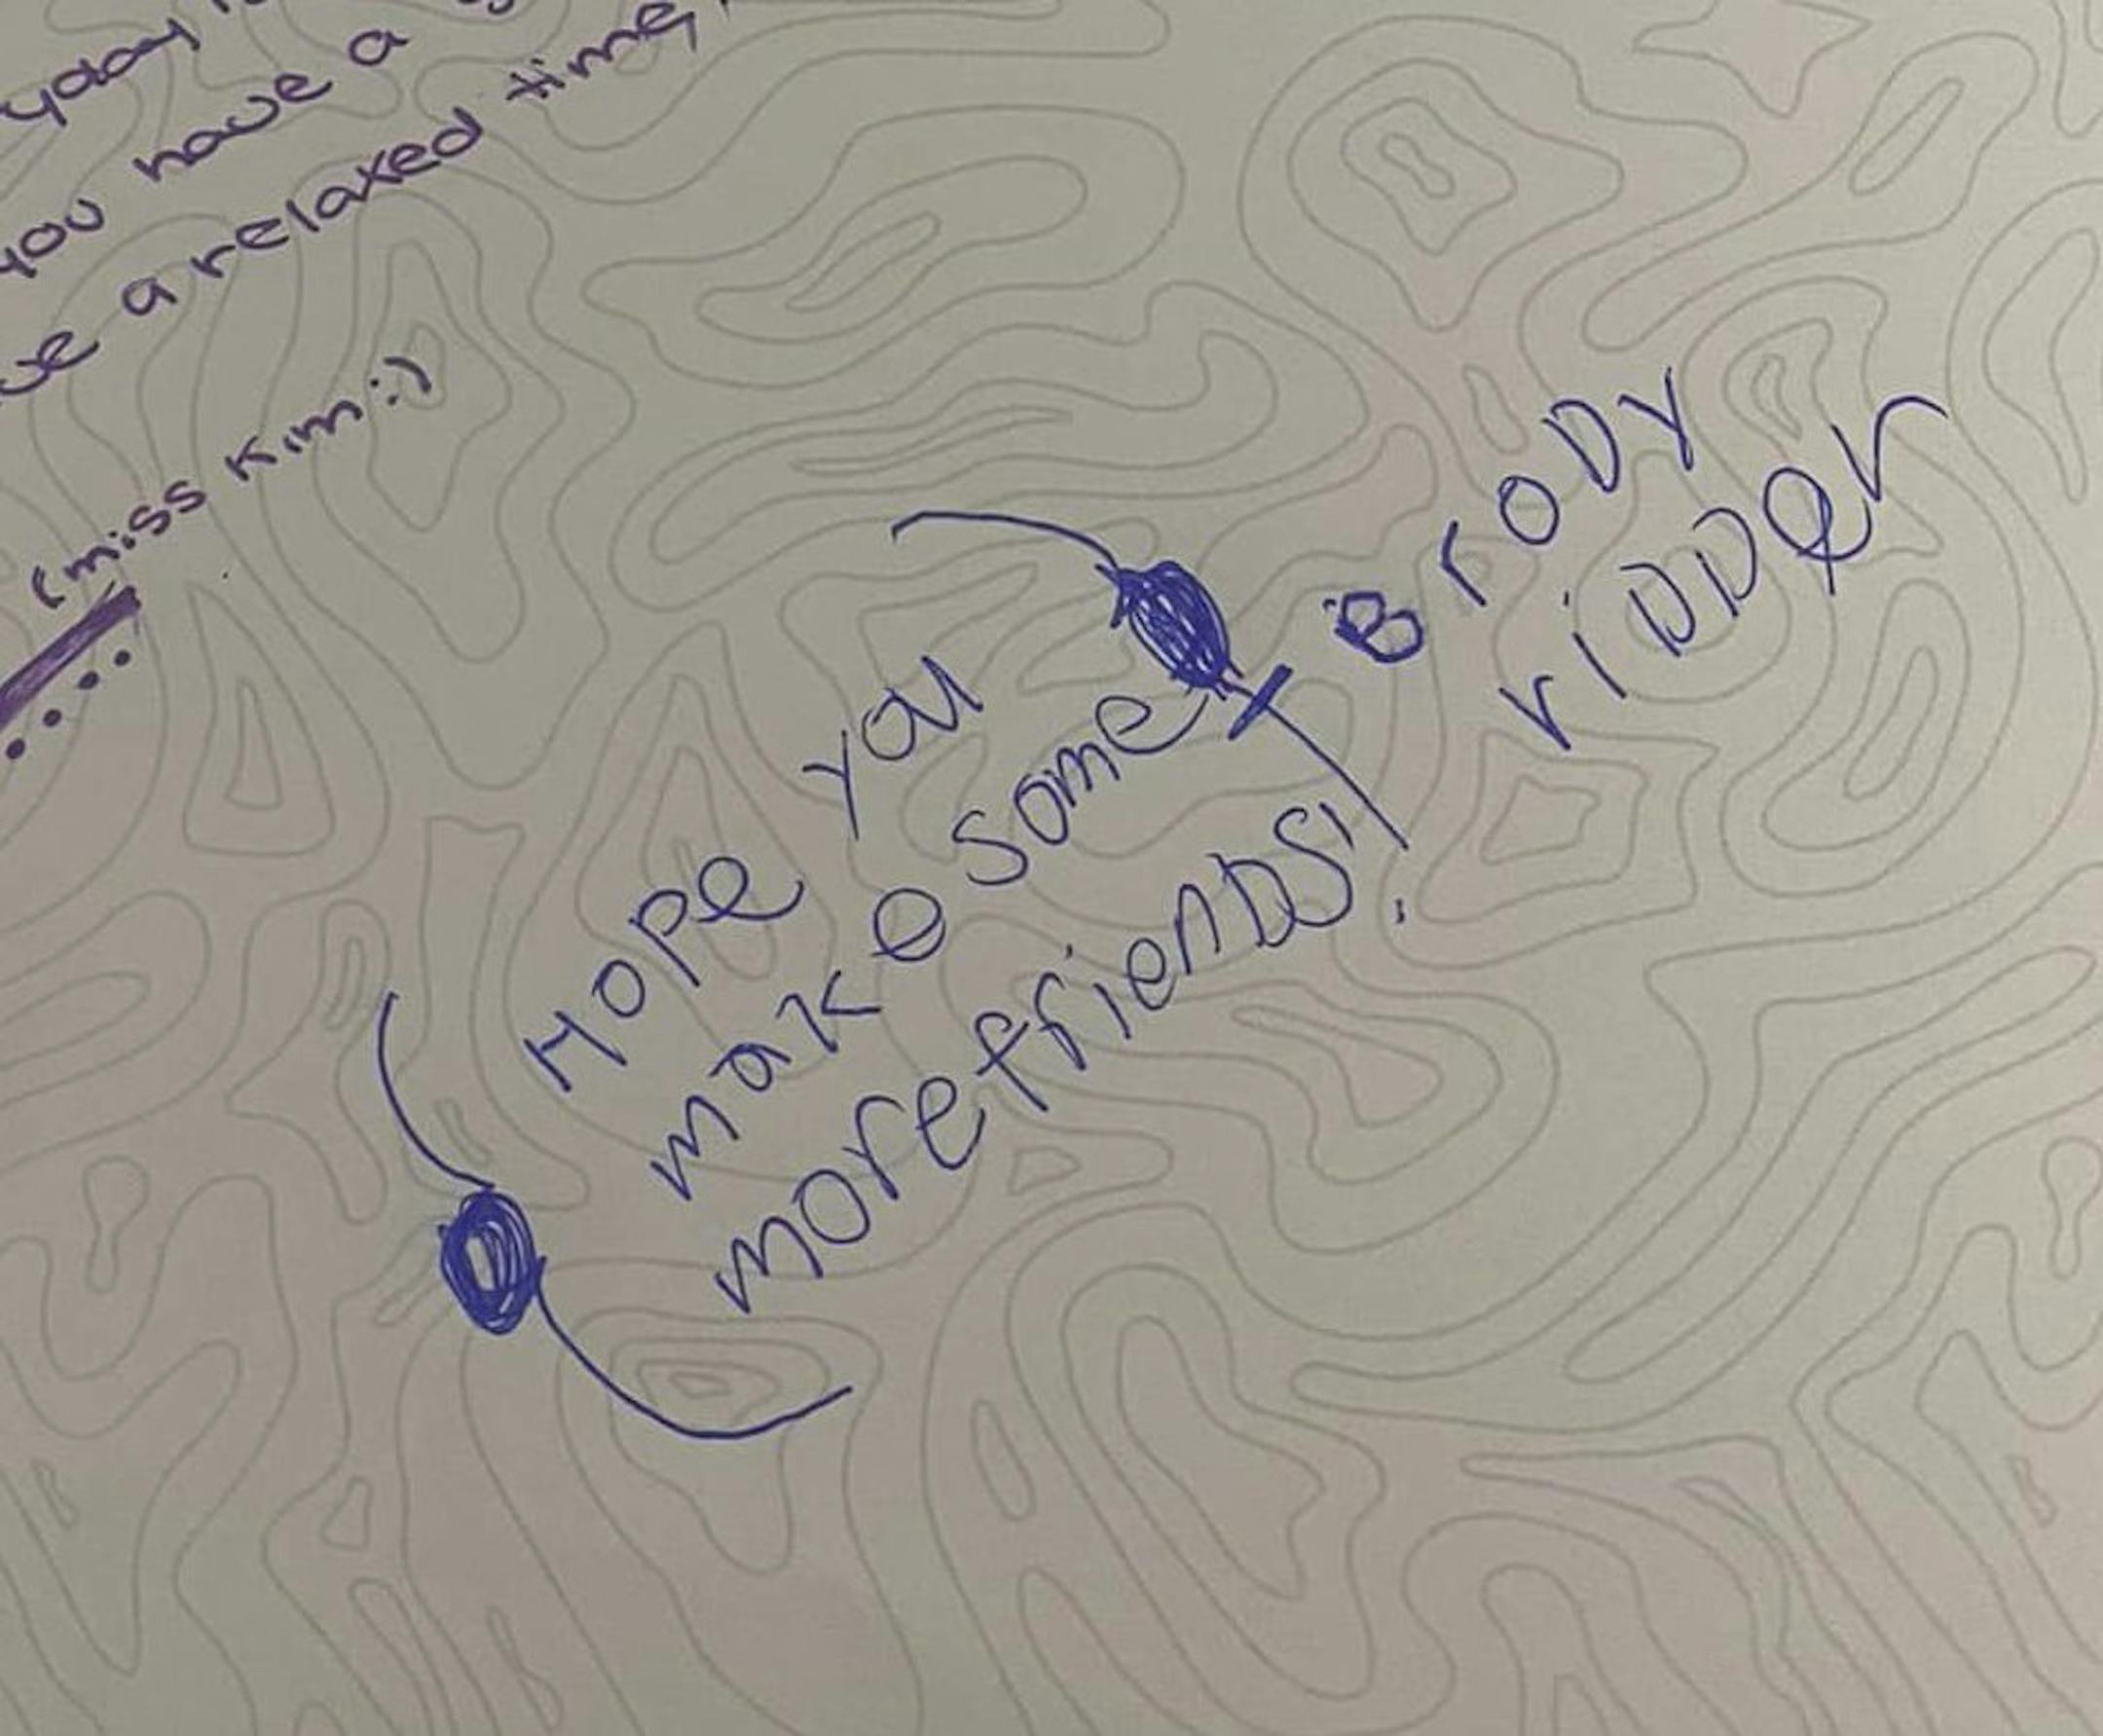 yday
you have a
a relaxed time,
(miss Kim :)
Hope you
make some
more friends!
- Brody
ridder